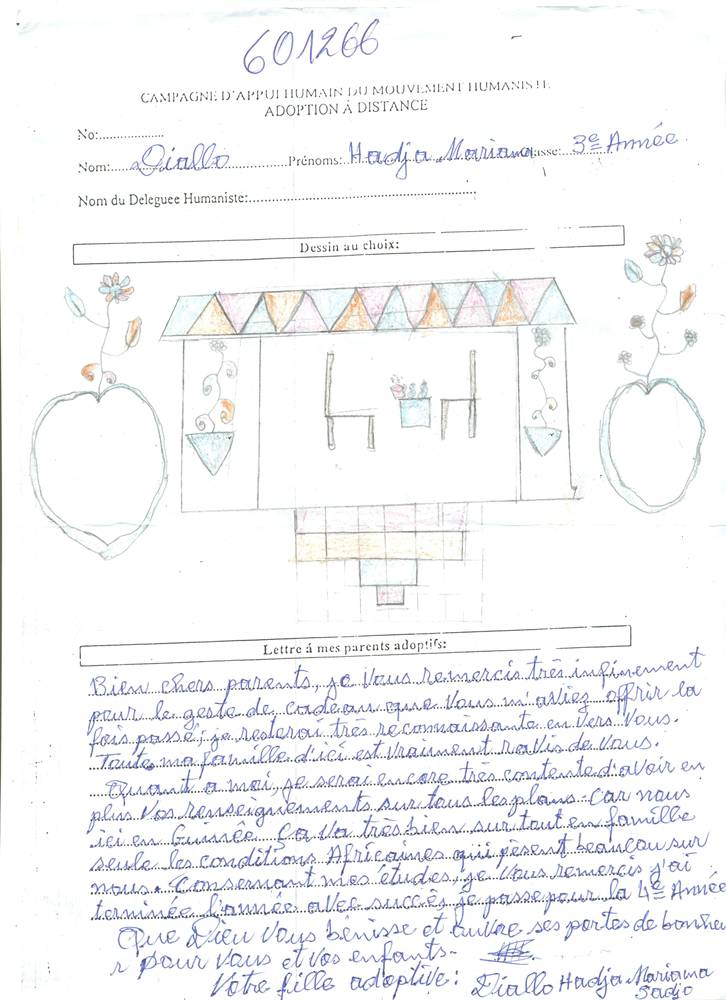 601266
CAMPAGNE D'APPUI HUMAIN DU MOUVEMENT HUMANISTE
ADOPTION Á DISTANCE
No:...................
Nom:.....Diallo.....Prénoms:..Hadja Mariama Classe:..3e Année.
Nom du Deleguee Humaniste:...............................................................
Dessin au choix:
Lettre á mes parents adoptifs:
Bien chers parents, je vous remercis très infinement
pour le geste de cadeau que vous m'aviez offrir la
fois passé; je resterai très reconnaissante en vers vous.
Toute ma famille d'ici est vraument ravis de vous.
Quant a moi, je serai encore très contente d'avoir en
plus vos renseignements sur tous les plans. Car nous
ici en Guinée ça va très bien sur tout en famille
seule les conditions Africaines qui pèsent beaucou sur
nous. Consernant mes études, je vous remercis j'ai
terminée l'année avec succès je passe pour la 4e Année
Que Dieu vous bénisse et ouvre ses portes de bonheu
r pour vous et vos enfants-
Vôtre fille adoptive: Diallo Hadja Mariama
Sadio